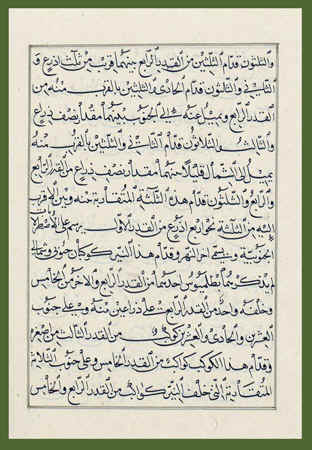 والثلثون قدام الثلثين من القدر الرابع بينهما قريب من ثلث اذرع و
الثاني والثلثون قدام الحادى والثلثين بالقرب منه من
القدر الرابع ويميل عنه الى الجنوب بينهما مقدار نصف ذراع
والثالث والثلاثون قدام الثاني والثلثين بالقرب منه
يميل الى الشمال قليلا بينهما مقدار نصف ذراع من القدر الرابع
والرابع والثلثون قدام هذه الثلثة المتقاربة منه وبين الاقرب
اليه من الثلثة نحو اربع اذرع من القدر الاول
الجنوبية ويسمى اخر النهر وقدام هذا النير كوكبان جنوبى وشمالي
لم يذكرهما بطلميوس احدهما من القدر الرابع والاخر من الخامس
وخلفه واحد من القدر الرابع على ذراعين منه وعلى جنوب
العشرين والحادى والعشرين كوكب من القدر الثالث من اصغره
وقدام هذا الكوكب كواكب من القدر الخامس وعلى جنوب الثلاثة
المتقاربة التي خلف النير كواكب من القدر الرابع والخامس